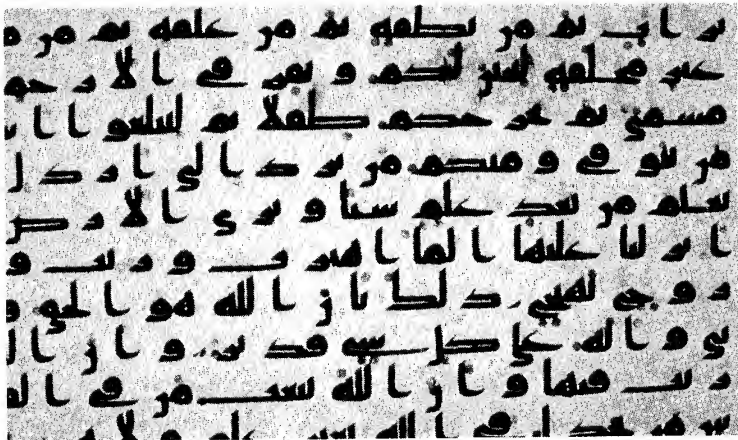 تراب ثم من نطفة ثم من علقة ثم من
مخلقة لنبين لكم ونقر في الارحم
مسمى ثم نخرجكم طفلا ثم لتبلغوا ا
من يتوفى ومنكم من يرد الى ارذل
يعلم من بعد علم شيئا وترى الارض
انزلنا عليها الما اهتزت وربت و
زوج بهيج ذلك بان الله هو الحق و
تى وانه على كل شي قدير وان ا
ريب فيها وان الله يبعث من في ال
من يجدل في الله بغير علم ولا